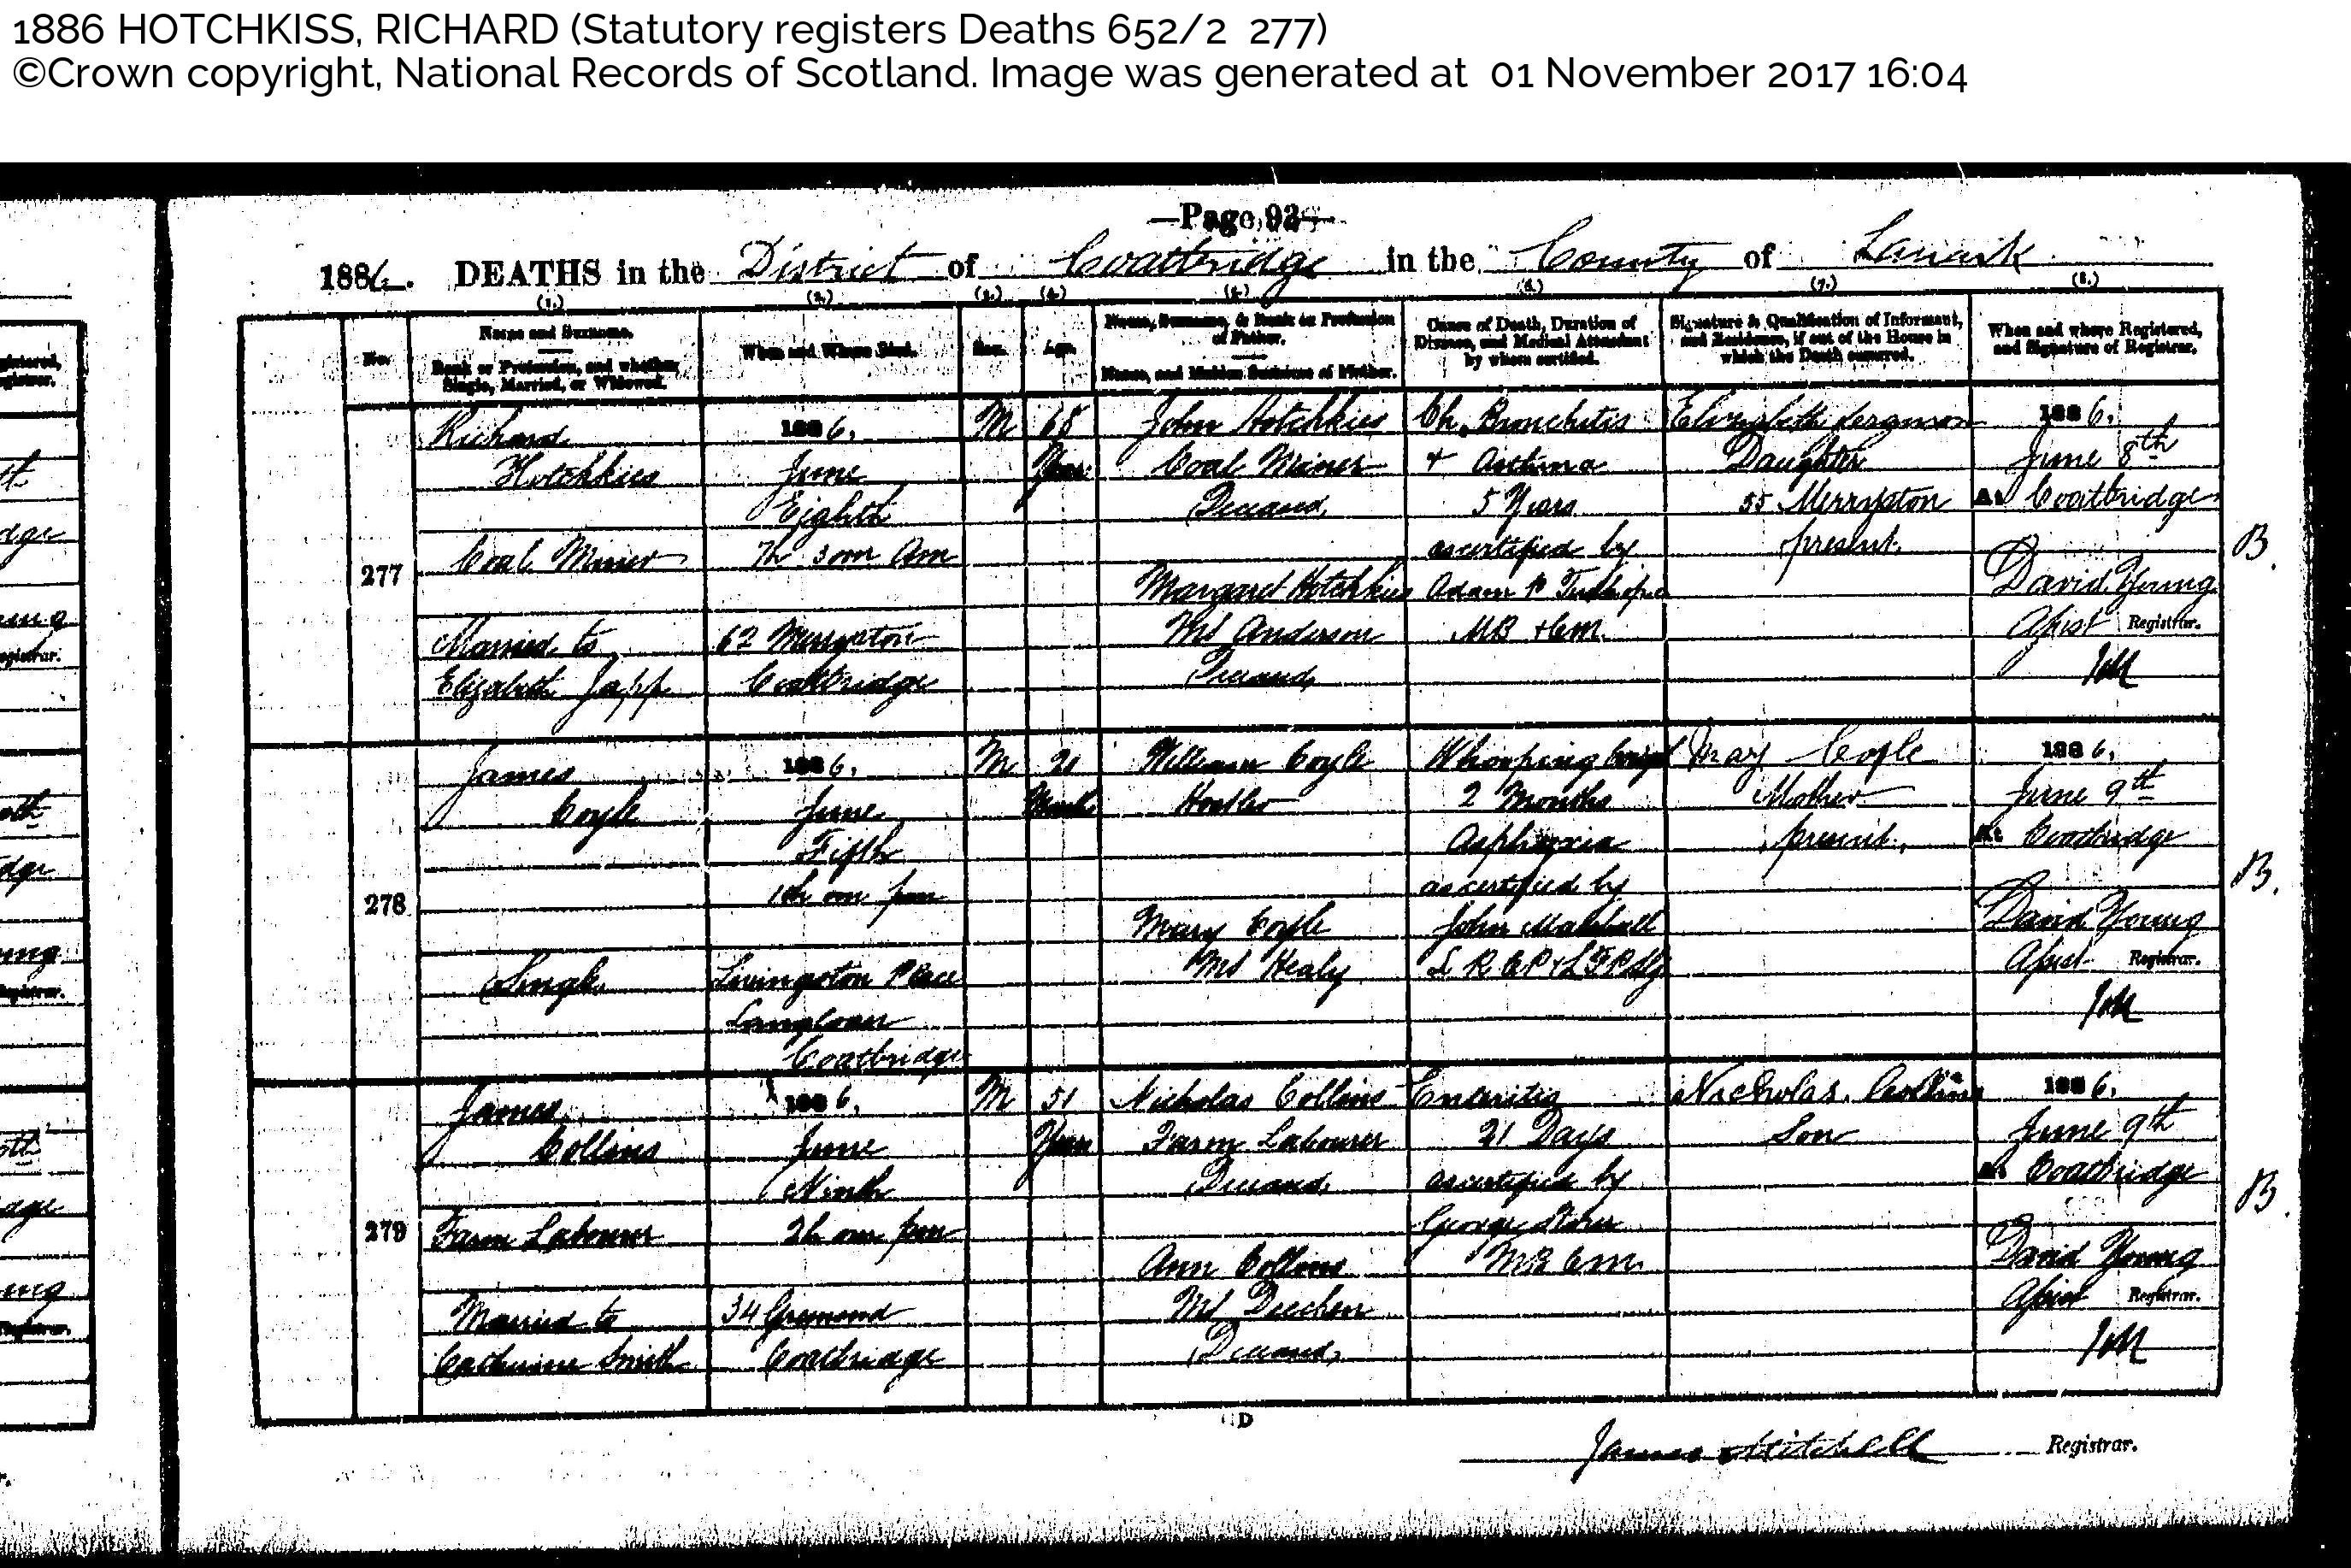 1886 HOTCHKISS, RICHARD (Statutory registers Deaths 652/2 277)
©Crown copyright, National Records of Scotland. Image was generated at 01 November 2017 16:04
—Page 93—
1886. DEATHS in the District of Coatbridge in the County of Lanark
(1.) (2.) (3.) (4.) (5.) (6.) (7.) (8.)
No.
Name and Surname.
Rank or Profession, and whether
Single, Married, or Widowed.
When and Where Died.
Sex.
Age.
Name, Surname, & Rank or Profession
of Father.
Name, and Maiden Surname of Mother.
Cause of Death, Duration of
Disease, and Medical Attendant
by whom certified.
Signature & Qualification of Informant,
and Residence, if out of the House in
which the Death occurred.
When and where Registered,
and Signature of Registrar.
277
Richard
Hotchkies
Coal Miner
Married to
Elizabeth Japp
1886.
June
Eighth
7h 30m am
62 Merryston
Coatbridge
M
68
Years
John Hotchkies
Coal Miner
Deceased
Margaret Hotchkies
MS Anderson
Deceased
Ch. Bronchitis
& Asthma
5 Years
as certified by
Adam
MB & CM
Elizabeth Ferguson
Daughter
55 Merryston
present
1886.
June 8th
At Coatbridge
David Young
Assist Registrar.
JM
B.
278
James
Coyle
Single
1886.
June
Fifth
pm
Livingston Place
Langloan
Coatbridge
M
Months
William Coyle
Hostler
Mary Coyle
MS Healy
Whooping Cough
2 Months
Asphyxia
as certified by
John Marshall
Mary Coyle
Mother
present.
1886.
June 9th
At Coatbridge
David Young
Assist Registrar.
JM
B.
279
James
Collins
Farm Labourer
Married to
Catherine Smith
1886.
June
Ninth
2h 0m pm
34
Coatbridge
M
51
Years
Nicholas Collins
Farm Labourer
Deceased
Ann Collins
MS
Deceased
Enteritis
21 Days
as certified by
George
MB CM
Nicholas Collins
Son
1886.
June 9th
At Coatbridge
David Young
Assist Registrar.
JM
B.
D
James Mitchell Registrar.